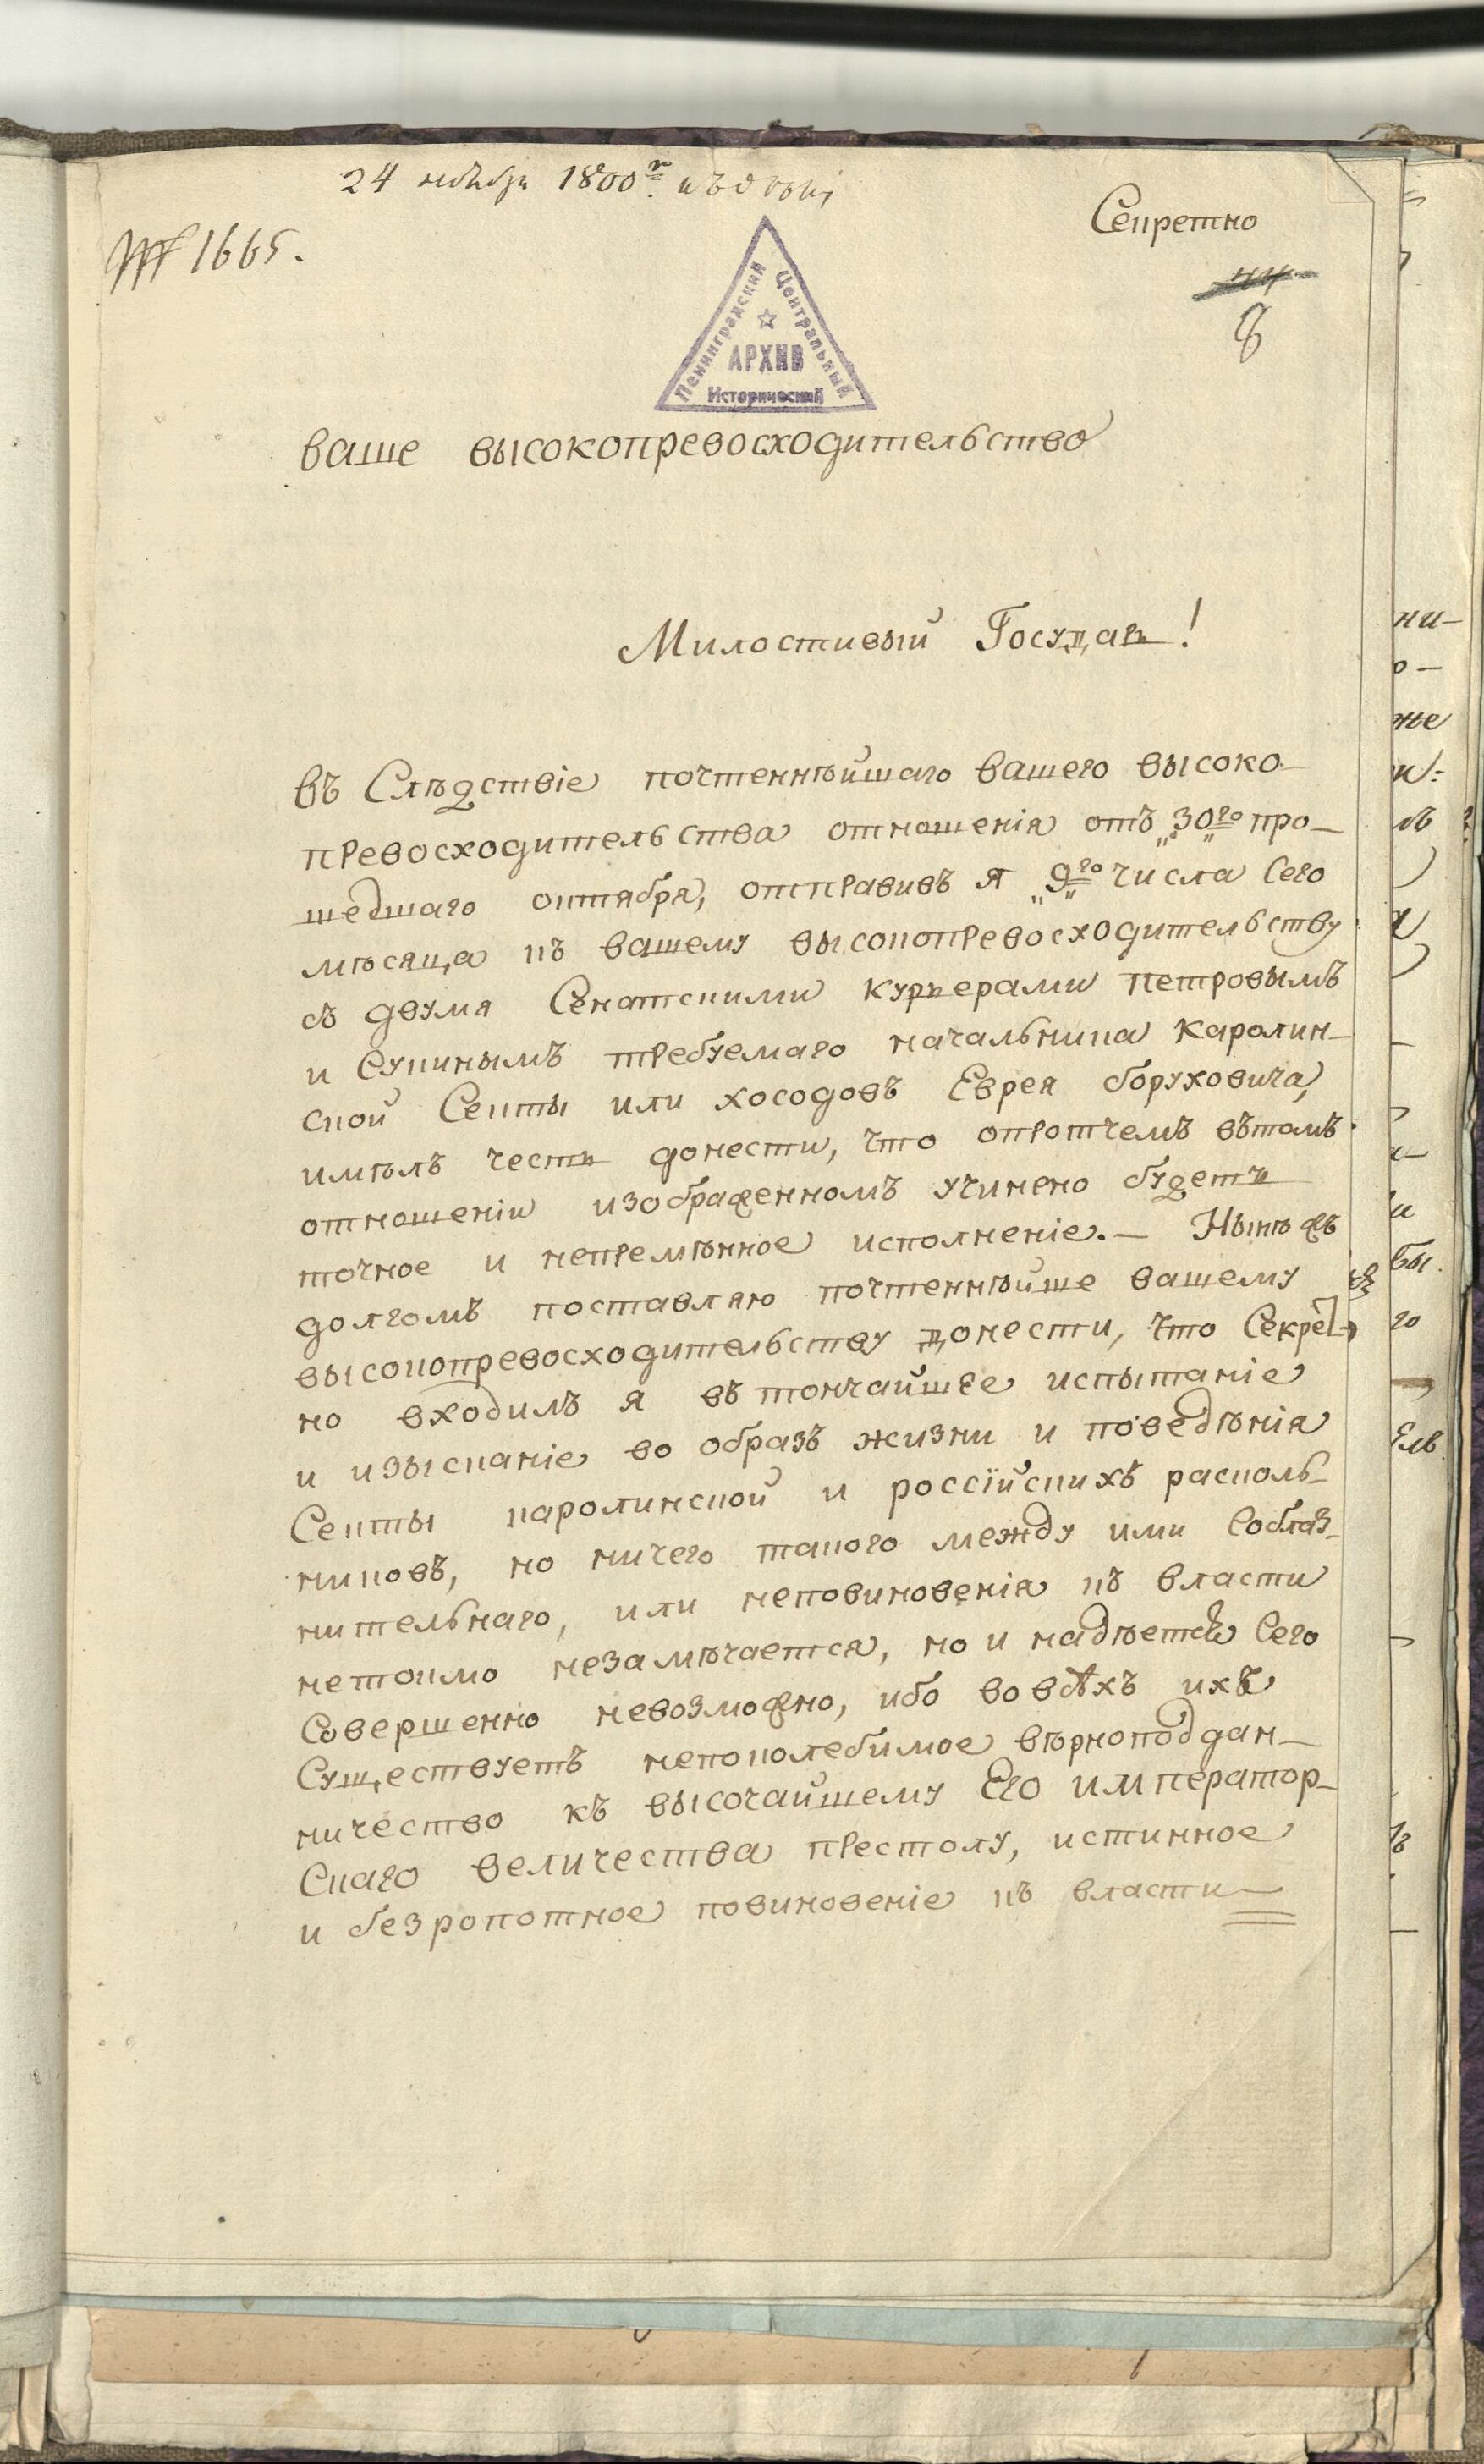 24 ноября 1800
№ 1665.
Секретно
8
Ленинградский Центральный
АРХИВ
Исторический
ваше высокопревосходительство
Милостивый Государь!
въ Слѣдствіе почтеннѣйшаго вашего высоко-
превосходительства отношенія отъ „30го„ про-
шедшаго октября, отправивъ я „9го„ числа сего
мѣсяца къ вашему высокопревосходительству
съ двумя Сенатскими курьерами Петровымъ
и Сукинымъ требуемаго начальника каролин-
ской Секты или хосодовъ Еврея боруховича,
имѣлъ честь донести, что опротчемъ вътомъ
отношеніи изображенномъ учинено будетъ
точное и непремѣнное исполненіе.— Нынѣжъ
долгомъ поставляю почтеннѣйше вашему
высокопревосходительству донести, что Секрет-
но входилъ я въ тончайшее испытаніе
и изысканіе во образъ жизни и поведѣнія
Секты каролинской и россійскихъ расколь-
никовъ, но ничего такого между ими Соблаз-
нительнаго, или неповиновенія къ власти
нетокмо незамѣчается, но и надѣется Сего
Совершенно невозможно, ибо вовсѣхъ ихъ
Существуетъ непоколебимое вѣрноподдан-
ничество къ высочайшему Его император-
Скаго величества престолу, истинное
и безропотное повиновеніе къ власти